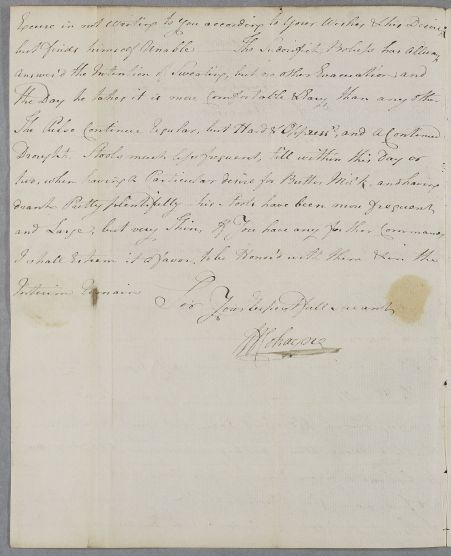 Excuse in not Writing to You according to Your Wishes & this Desire
but finds himself Unable — The Sudorifick Bolus's has allway
answer'd the Intention of Sweating, but no other Evacuation; and
the Day he takes it is more Comfortable & Easy than any other
The Pulse Continues Regular, but Hard & Oppress'd, and a Continued
Drought. Stools much less frequent, till within this day or
two, when having a Particular desire for Butter Milk, and having
drank Pretty plentifully his Stools have been more frequent
and Large, but very Thin, If You have any further Commands
I shall Esteem it a favor, to be Honor'd with them & in the
Interim Remain
Sir Your Respectfull servant